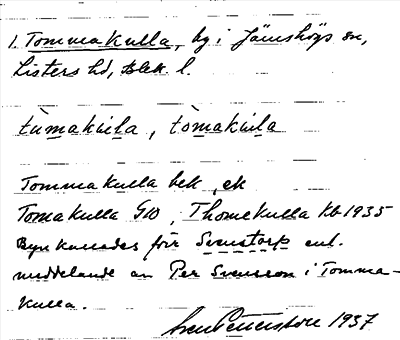 1. Tommakulla, by i Jämshögs sn,
Listers hd, Blek. l.
tùmakula, tòmakula
Tommakulla bek, ek
Tomakulla GW, Thomekulla Kb 1935
Byn kallades förr Svenstorp enl.
meddelande av Per Svensson i Tomma-
kulla.
Sven Petersson 1937